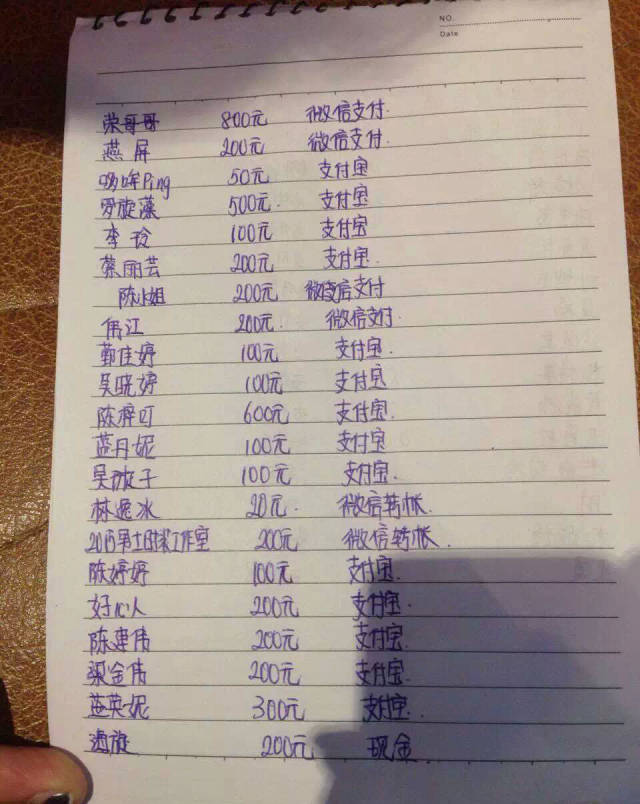 NO.
Date
荣哥哥 800元 微信支付.
燕屏 200元 微信支付.
Ping 50元 支付宝
罗旋藻 500元. 支付宝
李玲 100元 支付宝
蔡丽芸 200元 支付宝.
陈小姐 200元 微信支付
伟江 200元. 微信支付.
鄞佳婷 100元 支付宝.
吴晓婷 100元 支付宝
陈梓叮 600元 支付宝.
蓝丹妮 100元 支付宝
吴 子 100元 支付宝.
林逸冰 20元. 微信转帐.
2015男士时装工作室 200元 微信转帐.
陈婷婷 100元 支付宝.
好心人 200元 支付宝.
陈建伟 200元 支付宝.
梁金伟 200元 支付宝.
英妮 300元 支付宝.
旋 200元 现金